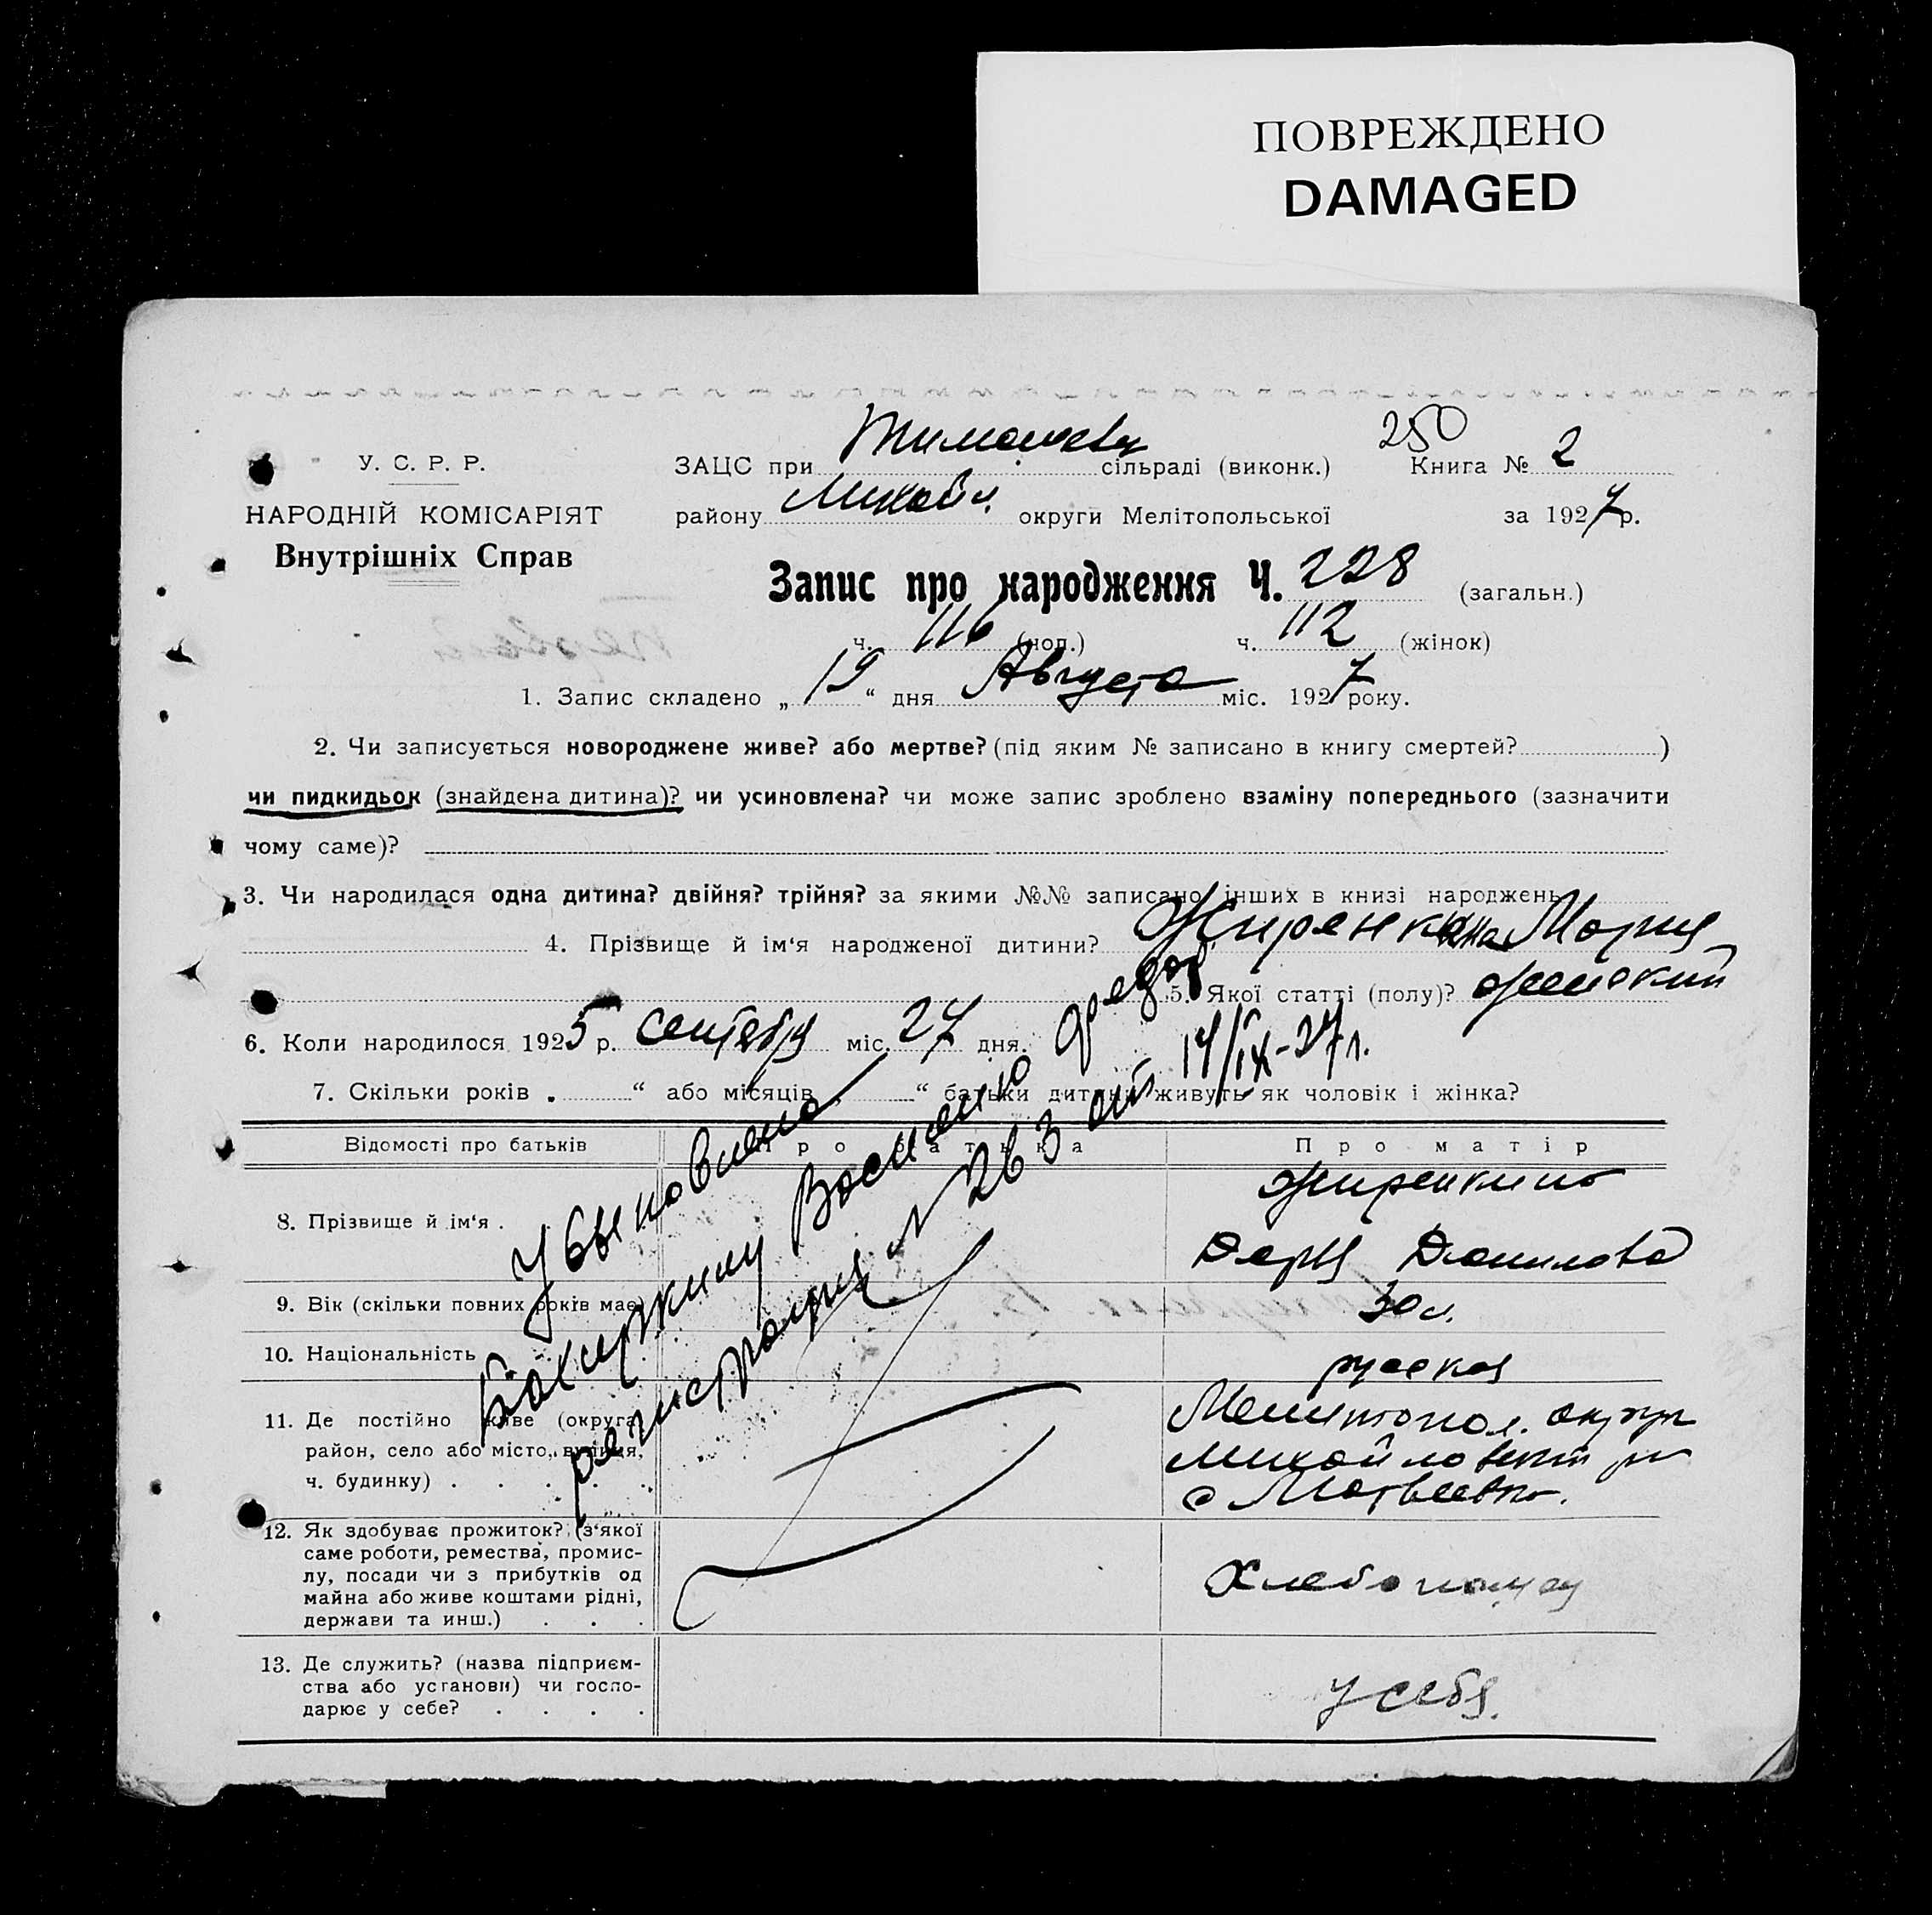 ПОВРЕЖДЕНО
DAMAGED
250
У. С. Р. Р.
ЗАЦС при Тимошевк сільраді (виконк.) Книга № 2
НАРОДНІЙ КОМІСАРІЯТ
району Михайл. округи Мелітопольської за 1927 р.
Внутрішніх Справ
Запис про народження Ч. 228 (загальн.)
ч. 116 (чол.) ч. 112 (жінок)
1. Запис складено „ 19 “ дня Августа міс. 1927 року.
2. Чи записується новороджене живе? або мертве? (під яким № записано в книгу смертей? )
чи пидкидьок (знайдена дитина)? чи усиновлена? чи може запис зроблено взаміну попереднього (зазначити
чому саме)?
3. Чи народилася одна дитина? двійня? трійня? за якими №№ записано інших в книзі народжень
4. Прізвище й ім‘я народженої дитини? Мария
5. Якої статті (полу)? женский
6. Коли народилося 1925 р. сентября міс. 27 дня.
7. Скільки років . “ або місяців “ батьки дитини живуть як чоловік і жінка?
Усыновлена
Василию Федор
регистрация № 263 от 14/IX-27 г.
Відомості про батьків Про батька Про матір
8. Прізвище й ім‘я . Жиренкина
Дарья Данилова
9. Вік (скільки повних років має) 30 л.
10. Національність русская
11. Де постійно живе (округа, Мелитопол. округ
район, село або місто, вулиця, Михайловский р-н
ч. будинку) . . . . . с Матвеевка.
12. Як здобуває прожиток? (з‘якої
саме роботи, ремества, промис-
лу, посади чи з прибутків од Хлебопашец
майна або живе коштами рідні,
держави та инш.) . . .
13. Де служить? (назва підприєм-
ства або установи) чи госпо- у себя.
дарює у себе? . . . .